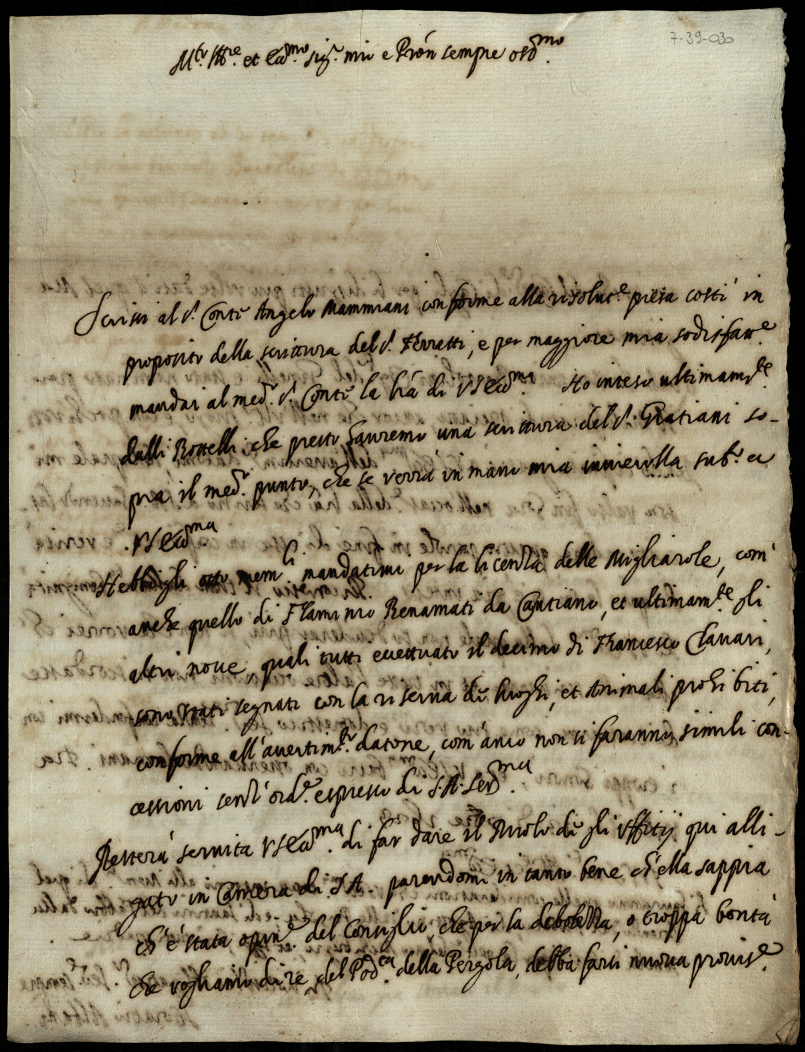 7-39-030
M.to Ill.re et Ecc.mo Sig.r mio e Prôn sempre oss.mo
Scrissi al S.r Conte Angelo Mammiani conforme alla risolut.e presa costì in
proposito della scrittura del S.r Ferretti, e per maggiore mia sodisfatt.e
mandai al med.o S.r Conte la l'rã di VS Ecc.ma Ho inteso ultimam.te
dalli Rottelli, che presto hauremo una scrittura del S.r Gratiani so-
pra il med.o punto, che se verrà in mano mia invierolla sub.o a
VS Ecc.ma
Hebbi gli otto mem.li mandatimi per la licenza delle Migliarole, com'
anche quello di Flaminio Benamati da Cantiano, et ultimam.te gli
altri nove, quali tutti eccettuato il decimo di Francesco Clavari,
sono stati segnati con la riserva de luoghi, et Animali prohibiti,
conforme all'avertim.to datone, com'anco non si faranno simili con-
cessioni senz'ord.e espresso di S.A. Ser.ma
Resterà servita VS Ecc.ma di far dare il Ruolo de gli Uffitij qui alli-
gato in Camera di S.A. parendomi in tanto bene ch'ella sappia
ch'è stata opin.e del Consiglio, che per la debolezza, o troppa bontà
che vogliamo dire, del Pod.tà della Pergola, debba farsi nuova provis.e